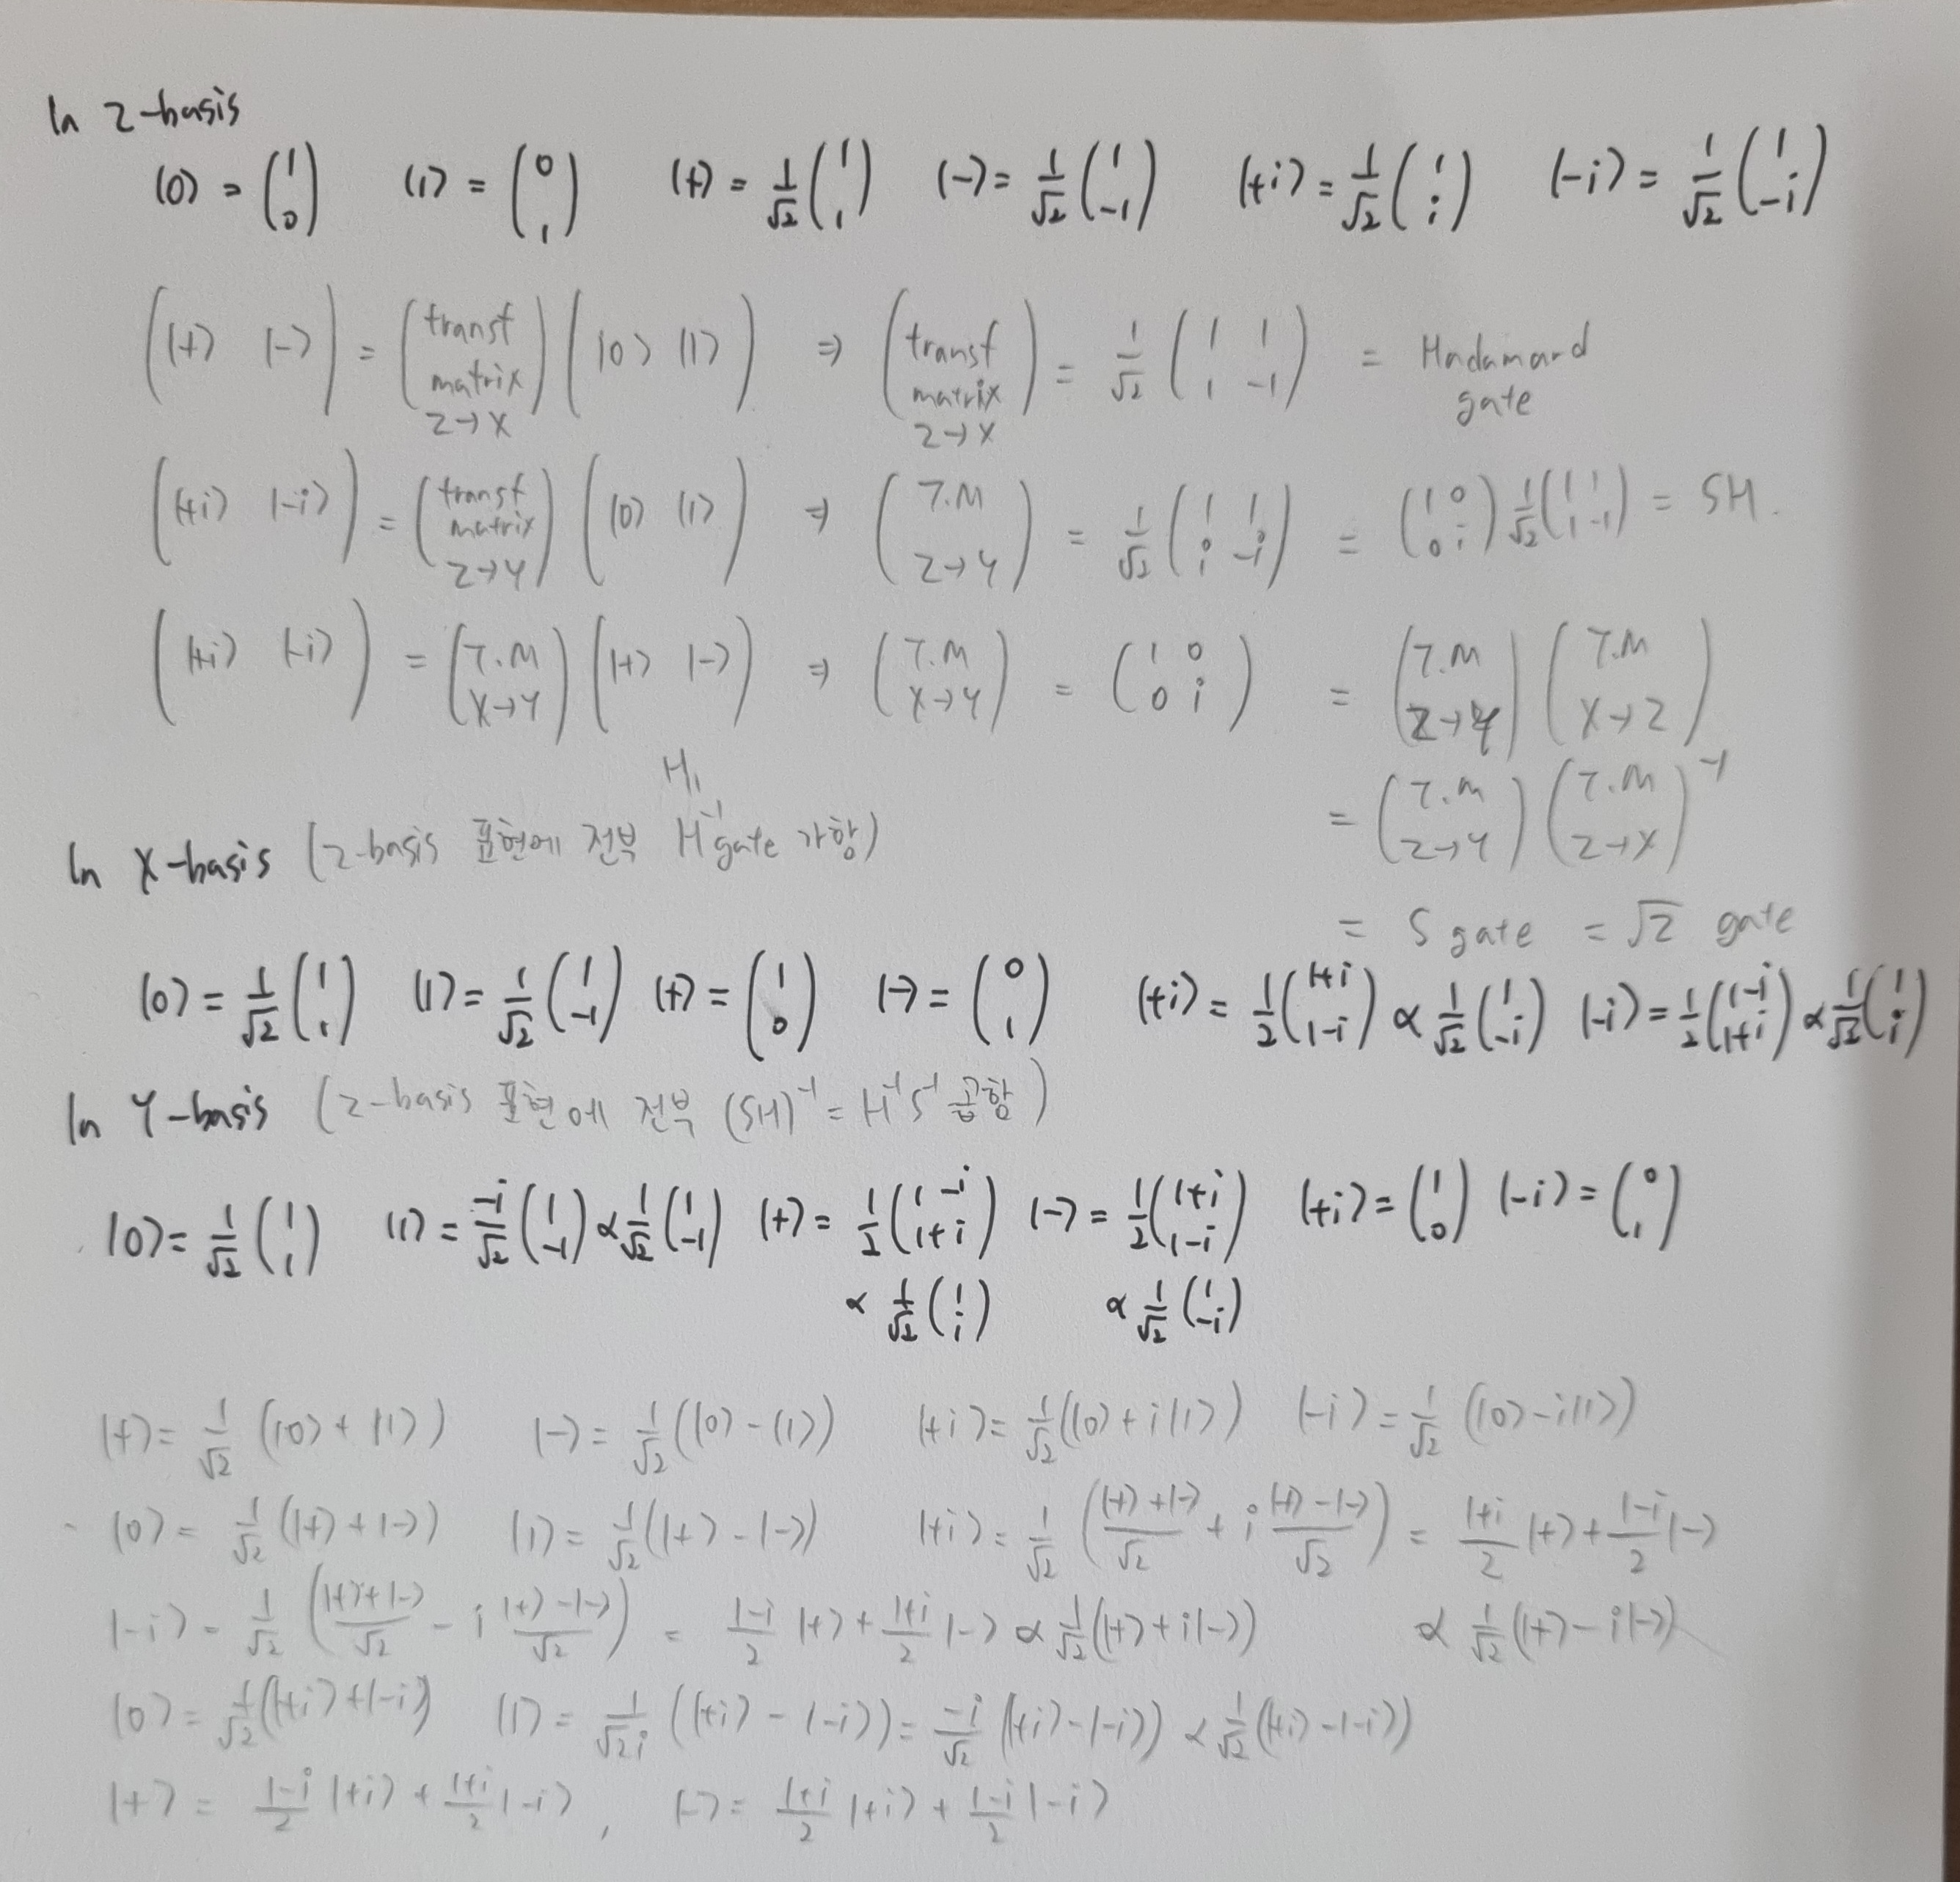 In Z-basis
|0> = (1 0) |1> = (0 1) |+> = 1/√2 (1 1) |-> = 1/√2 (1 -1) |+i> = 1/√2 (1 i) |-i> = 1/√2 (1 -i)
(|+> |->) = (transf matrix Z→X) (|0> |1>) ⇒ (transf matrix Z→X) = 1/√2 (1 1 1 -1) = Hadamard gate
(|+i> |-i>) = (transf matrix Z→Y) (|0> |1>) ⇒ (T.M Z→Y) = 1/√2 (1 1 i -i) = (1 0 0 i) 1/√2 (1 1 1 -1) = SH.
(|+i> |-i>) = (T.M X→Y) (|+> |->) ⇒ (T.M X→Y) = (1 0 0 i) = (T.M Z→Y) (T.M X→Z)
= (T.M Z→Y) (T.M Z→X)⁻¹
= S gate = √Z gate
H,
In X-basis (Z-basis 표현에 전부 H⁻¹ gate 가함)
|0> = 1/√2 (1 1) |1> = 1/√2 (1 -1) |+> = (1 0) |-> = (0 1) |+i> = 1/2 (1+i 1-i) ∝ 1/√2 (1 -i) |-i> = 1/2 (1-i 1+i) ∝ 1/√2 (1 i)
In Y-basis (Z-basis 표현에 전부 (SH)⁻¹ = H⁻¹S⁻¹ 곱함)
|0> = 1/√2 (1 1) |1> = -i/√2 (1 -1) ∝ 1/√2 (1 -1) |+> = 1/2 (1-i 1+i) |-> = 1/2 (1+i 1-i) |+i> = (1 0) |-i> = (0 1)
∝ 1/√2 (1 i) ∝ 1/√2 (1 -i)
|+> = 1/√2 (|0> + |1>) |-> = 1/√2 (|0> - |1>) |+i> = 1/√2 (|0> + i|1>) |-i> = 1/√2 (|0> - i|1>)
|0> = 1/√2 (|+> + |->) |1> = 1/√2 (|+> - |->) |+i> = 1/√2 ((|+> + |->)/√2 + i (|+> - |->)/√2) = (1+i)/2 |+> + (1-i)/2 |->
|-i> = 1/√2 ((|+> + |->)/√2 - i (|+> - |->)/√2) = (1-i)/2 |+> + (1+i)/2 |-> ∝ 1/√2 (|+> + i|->) ∝ 1/√2 (|+> - i|->)
|0> = 1/√2 (|+i> + |-i>) |1> = 1/√2i (|+i> - |-i>) = -i/√2 (|+i> - |-i>) ∝ 1/√2 (|+i> - |-i>)
|+> = (1-i)/2 |+i> + (1+i)/2 |-i>, |-> = (1+i)/2 |+i> + (1-i)/2 |-i>